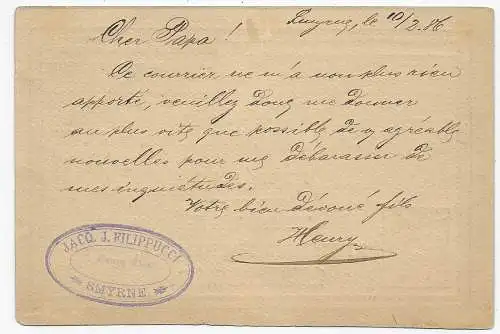 Smyrne, le 10/2.86
Cher Papa!
Ce courrier ne m'a non plus rien
apporté, veuillez donc me donner
au plus vite que possible de agréable
nouvelles pour me débarasser de
mes inquiétudes.
Votre bien dévoué fils
Henry
JACQ. J. FILIPPUCCI
SMYRNE